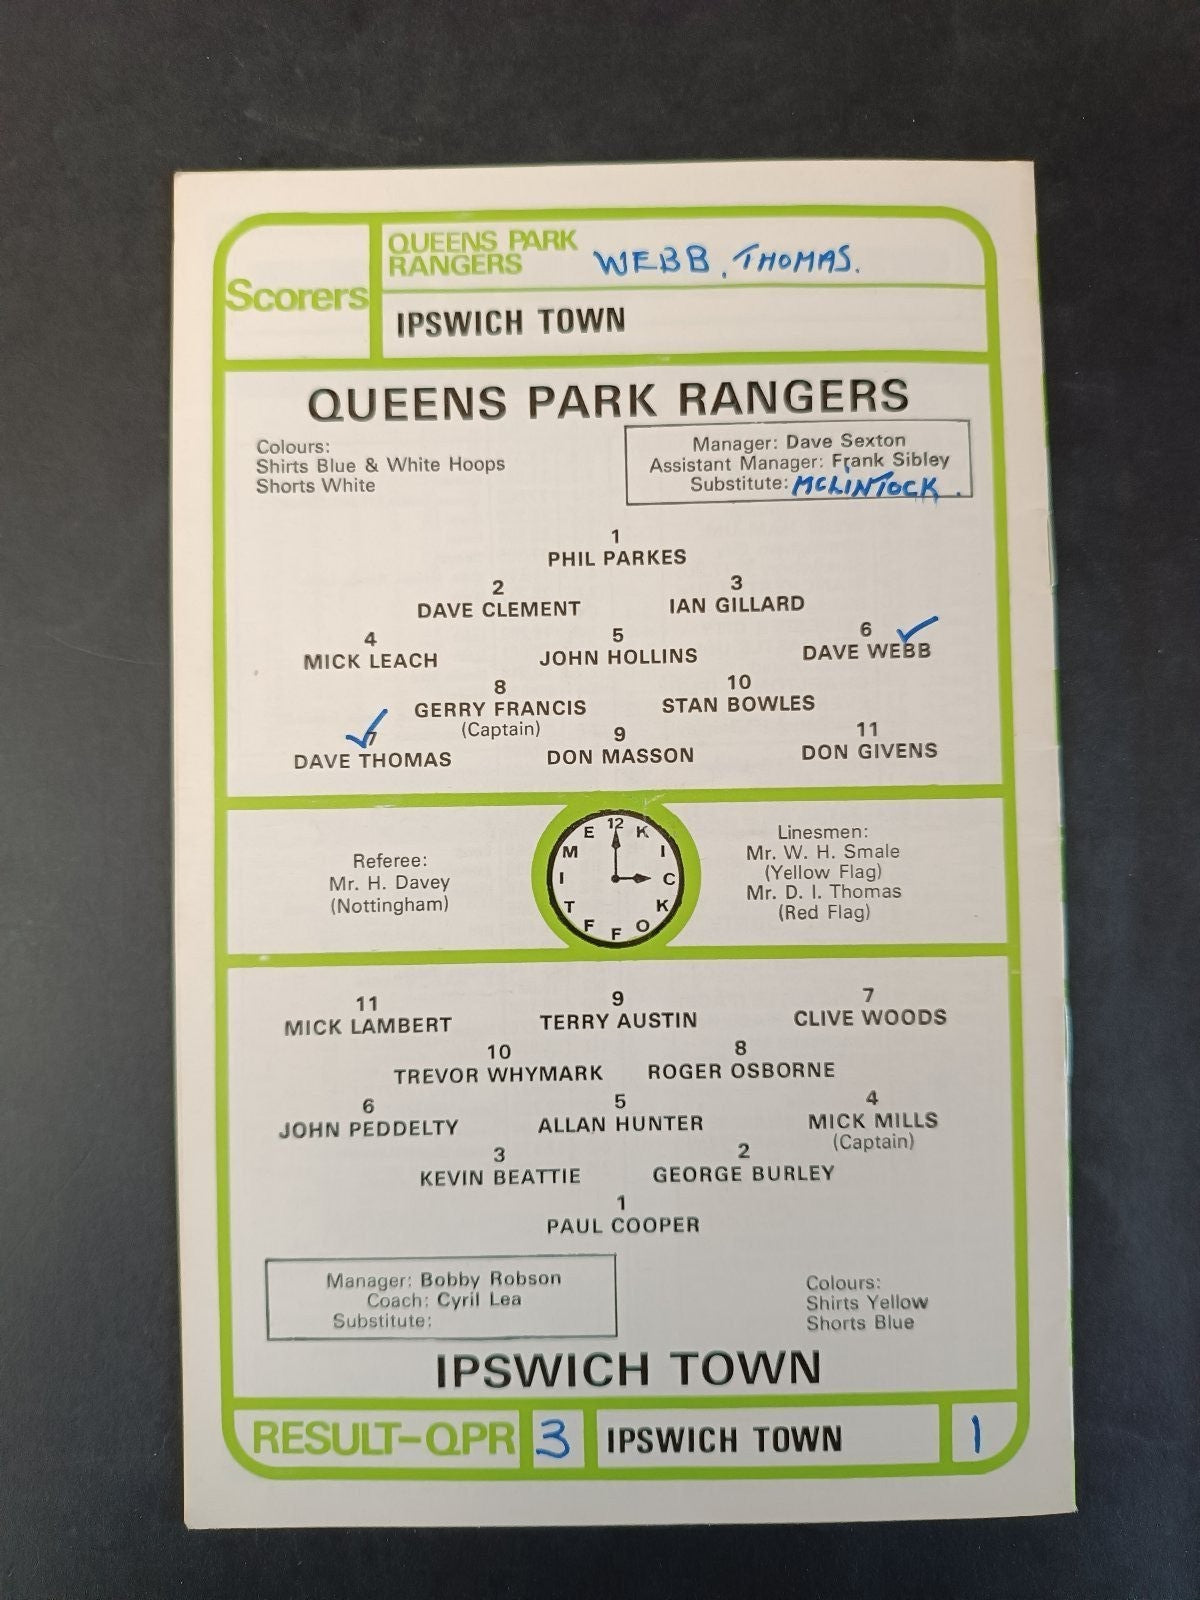 Scorers
QUEENS PARK
RANGERS
WEBB, THOMAS.
IPSWICH TOWN
QUEENS PARK RANGERS
Colours:
Shirts Blue & White Hoops
Shorts White
Manager: Dave Sexton
Assistant Manager: Frank Sibley
Substitute: MCLINTOCK.
1
PHIL PARKES
2 3
DAVE CLEMENT IAN GILLARD
4 5 6
MICK LEACH JOHN HOLLINS DAVE WEBB
8 10
GERRY FRANCIS STAN BOWLES
(Captain)
7 9 11
DAVE THOMAS DON MASSON DON GIVENS
Referee:
Mr. H. Davey
(Nottingham)
12 KICK OFF TIME
Linesmen:
Mr. W. H. Smale
(Yellow Flag)
Mr. D. I. Thomas
(Red Flag)
11 9 7
MICK LAMBERT TERRY AUSTIN CLIVE WOODS
10 8
TREVOR WHYMARK ROGER OSBORNE
6 5 4
JOHN PEDDELTY ALLAN HUNTER MICK MILLS
(Captain)
3 2
KEVIN BEATTIE GEORGE BURLEY
1
PAUL COOPER
Manager: Bobby Robson
Coach: Cyril Lea
Substitute:
Colours:
Shirts Yellow
Shorts Blue
IPSWICH TOWN
RESULT-QPR 3 IPSWICH TOWN 1